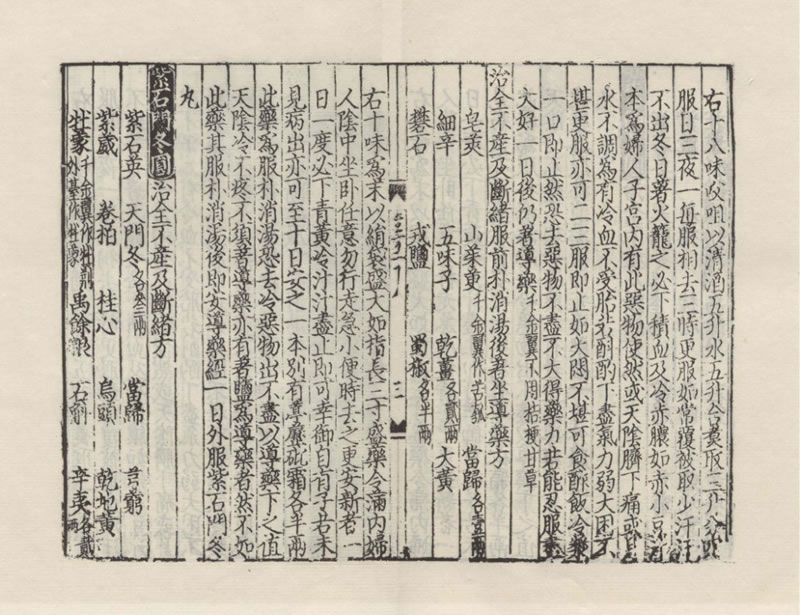 右十八味㕮咀以清酒五升水五升合煑取三升分四
服日三夜一每服相去三時更服如常覆被取少汗汗
不出冬日著火籠之必下積血及冷赤膿如赤小豆
本爲婦人子宮內有此惡物使然或天陰臍下痛或月
水不調爲有冷血不受胎若斟酌下盡氣力弱大困不
堪更服亦可二三服即止如大悶不堪可食酢飯冷漿
一口即止然恐去惡物不盡不大得藥力若能忍服盡
大好一日後仍著導藥千金翼不用桔梗甘草
治全不產及斷緖服前朴消湯後著坐導藥方
皂莢 山茱萸千金翼作苦瓠 當歸各壹兩
細辛 五味子 乾薑各貳兩 大黃
礬石 戎鹽 蜀椒各半兩
右十味爲末以絹袋盛大如指長三寸盛藥令滿內婦
人陰中坐卧任意勿行走急小便時去之更安新者一
日一度必下青黃冷汁汁盡止即可幸御自有子若未
見病出亦可至十日安之一本別有葶藶砒霜各半兩
此藥爲服朴消湯恐去冷惡物出不盡以導藥下之值
天陰冷不疼不須著導藥亦有著鹽爲導藥者然不如
此藥其服朴消湯後即安導藥經一日外服紫石門冬
丸
紫石門冬圓治全不產及斷緖方
紫石英 天門冬各叁兩 當歸 芎藭
紫葳 卷柏 桂心 烏頭 乾地黃
牡蒙千金翼作牡荆外臺作牡蒙 禹餘粮 石斛 辛夷各貳兩